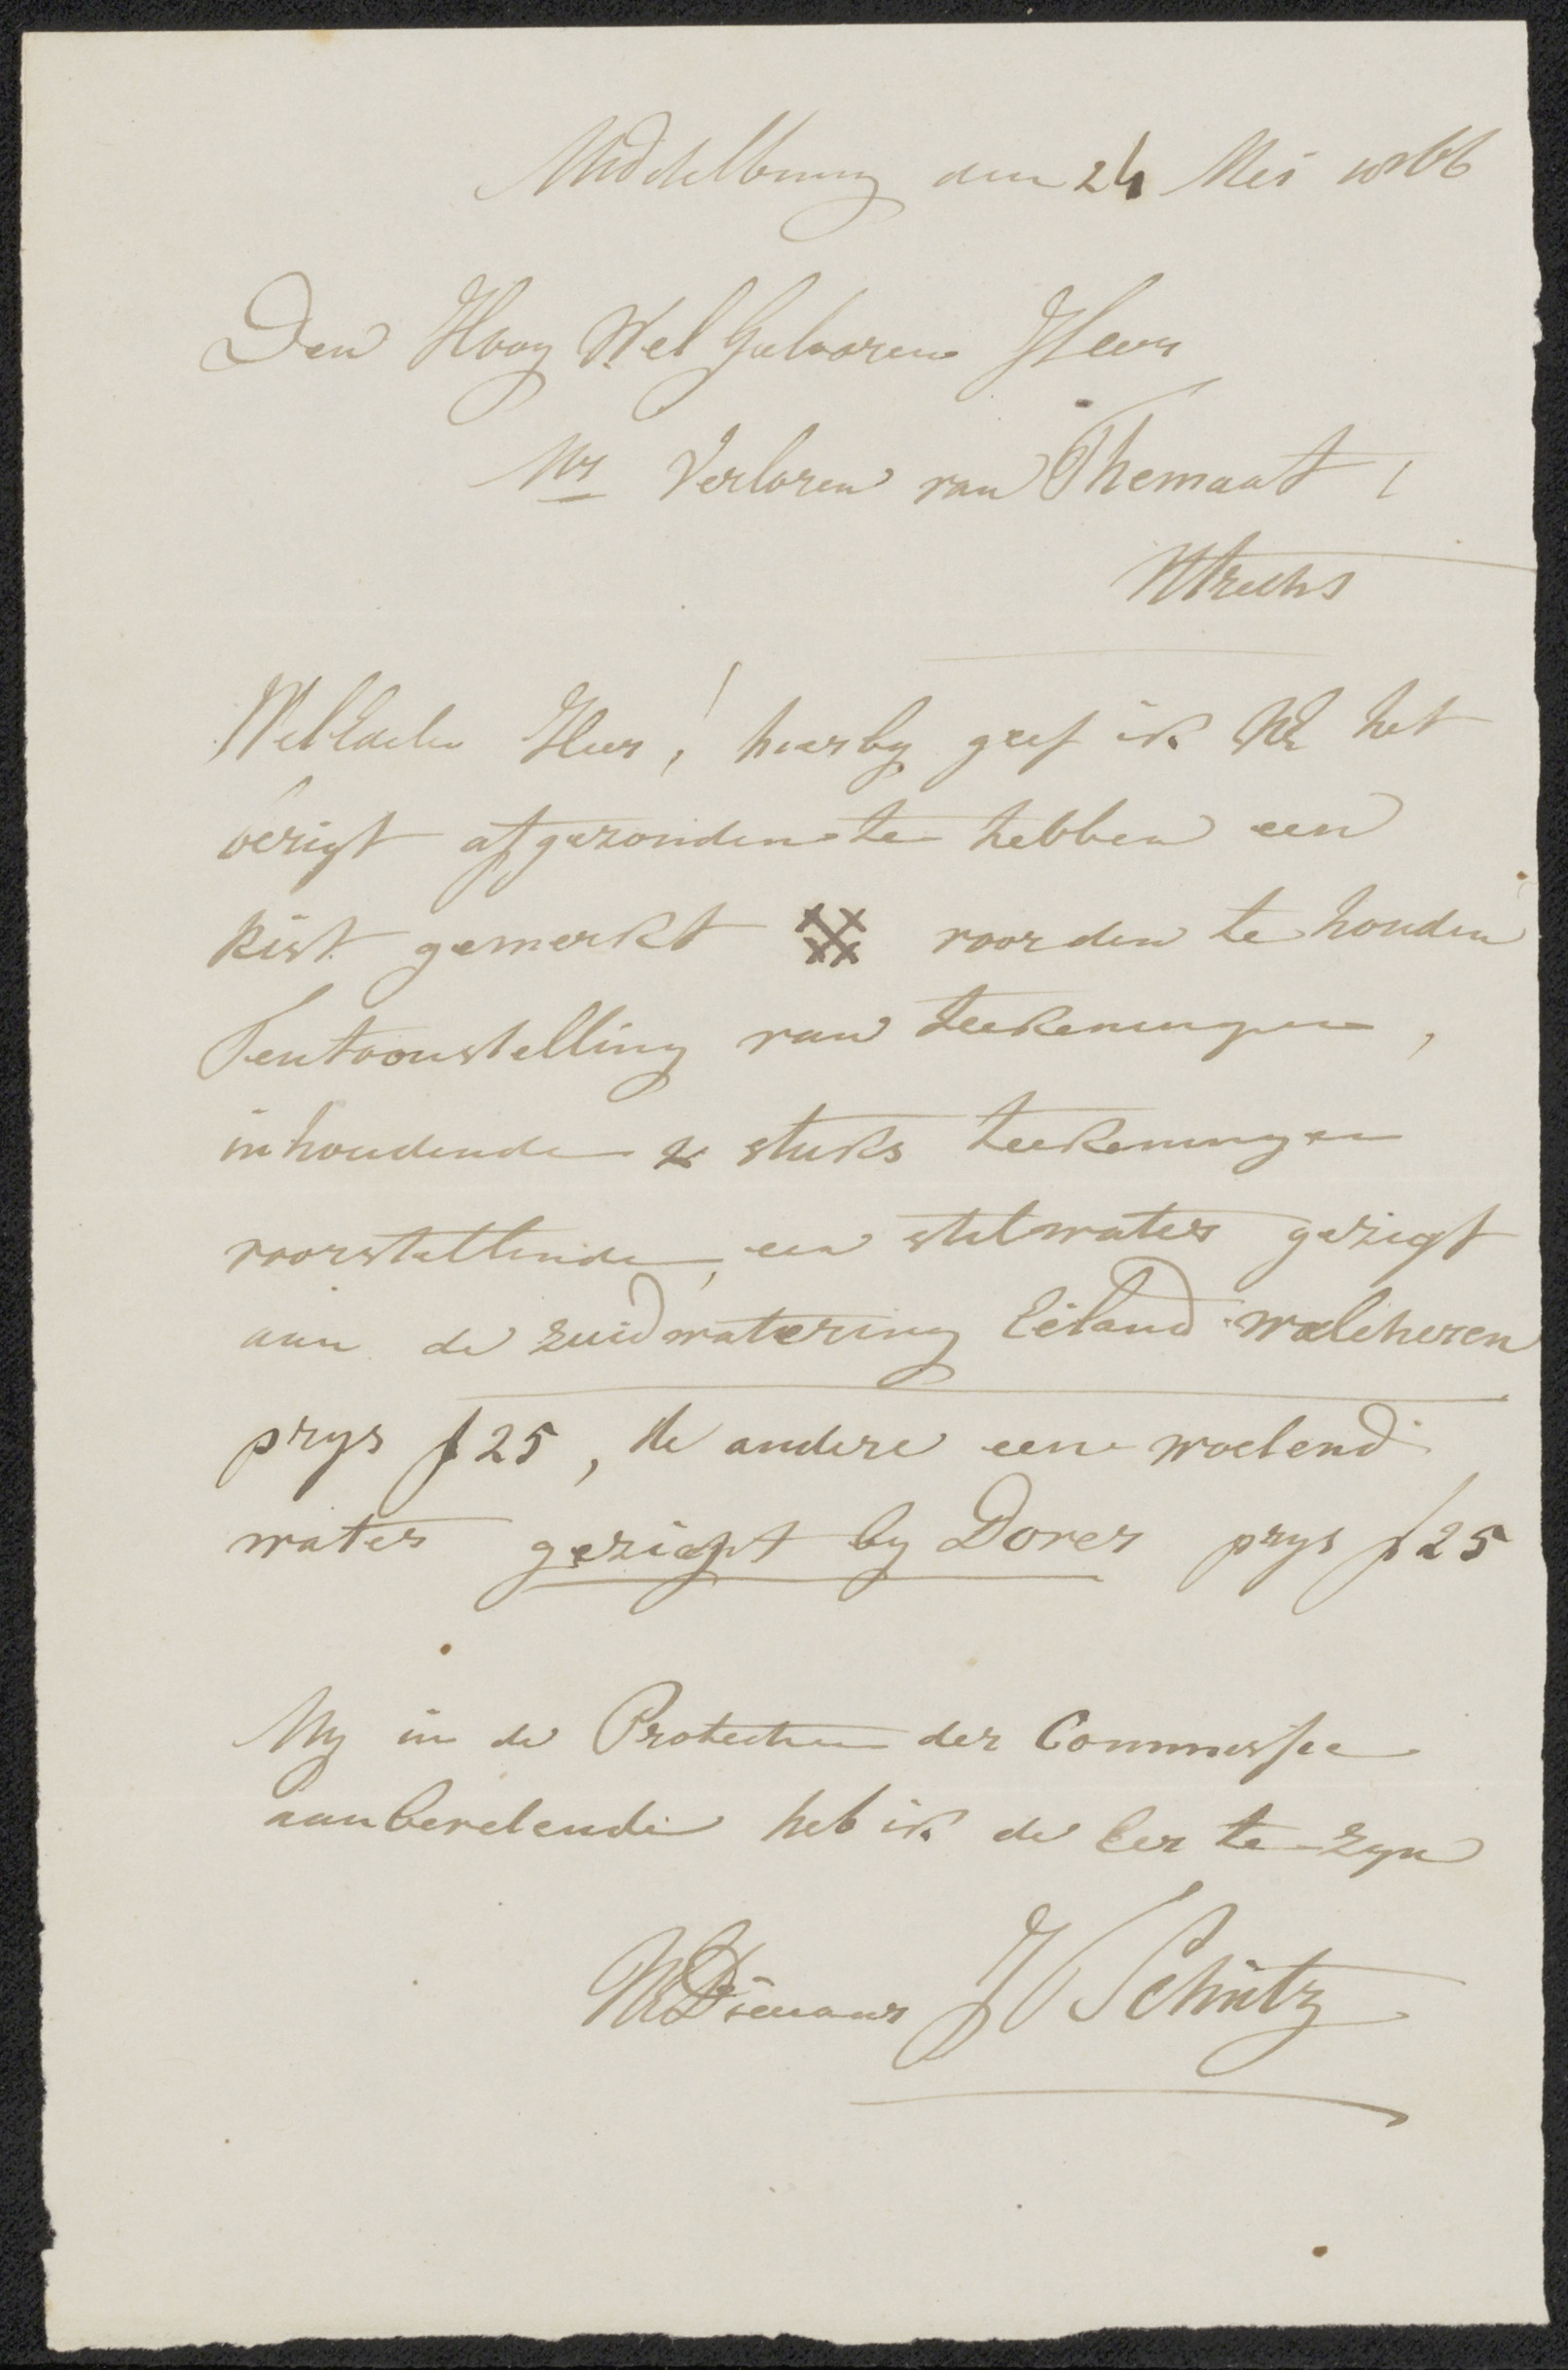 Middelburg den 24 Mei 1866
Den Hoog Wel Geboren Heer
Mr Verloren van Themaat
Utrecht
WelEdele Heer! hierby geef ik UE het
berigt afgezonden te hebben een
kist gemerkt voor den te houden
Tentoonstelling van teekeningen,
inhoudende 2 stuks teekeningen
voorstellende, een stilwater gezigt
aan de zuidwatering Eiland walcheren
prys f 25, de andere een woelend
water gezigt by Dover prys f 25
My in de Protectie der Commissie
aanbevelende heb ik de Eer te zyn
UEDienaar J Schütz